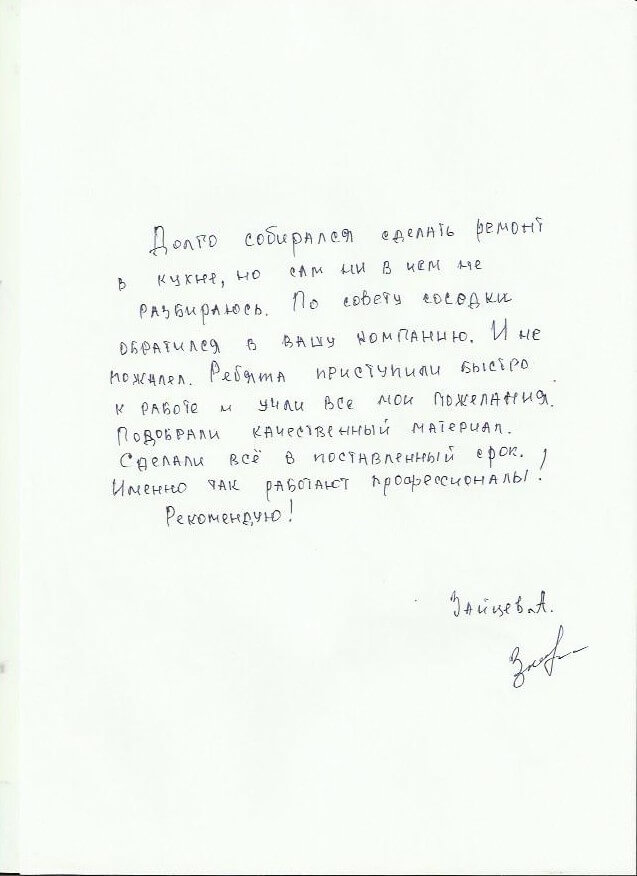 Долго собирался сделать ремонт
в кухне, но сам ни в чем не
разбираюсь. По совету соседки
обратился в вашу компанию. И не
пожалел. Ребята приступили быстро
к работе и учли все мои пожелания.
Подобрали качественный материал.
Сделали всё в поставленный срок.
Именно так работают профессионалы!
Рекомендую!
Зайцев А.